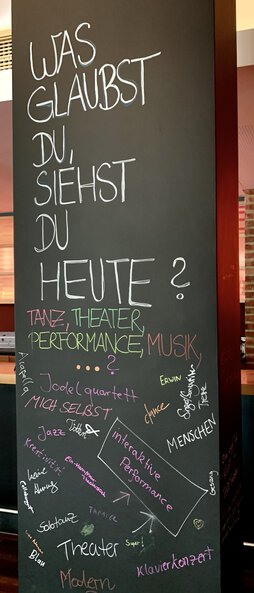 WAS
GLAUBST
DU,
SIEHST
DU
HEUTE?
TANZ, THEATER,
PERFORMANCE, MUSIK,
...?
Acapella
Jodelquartett
ERWIN
MICH SELBST
dance
Jazz
MENSCHEN
Kreativität
Interaktive
Performance
keine
Ahnung
Gesang
Solotanz
Theater
Super!
Blau
Klavierkonzert
Modern